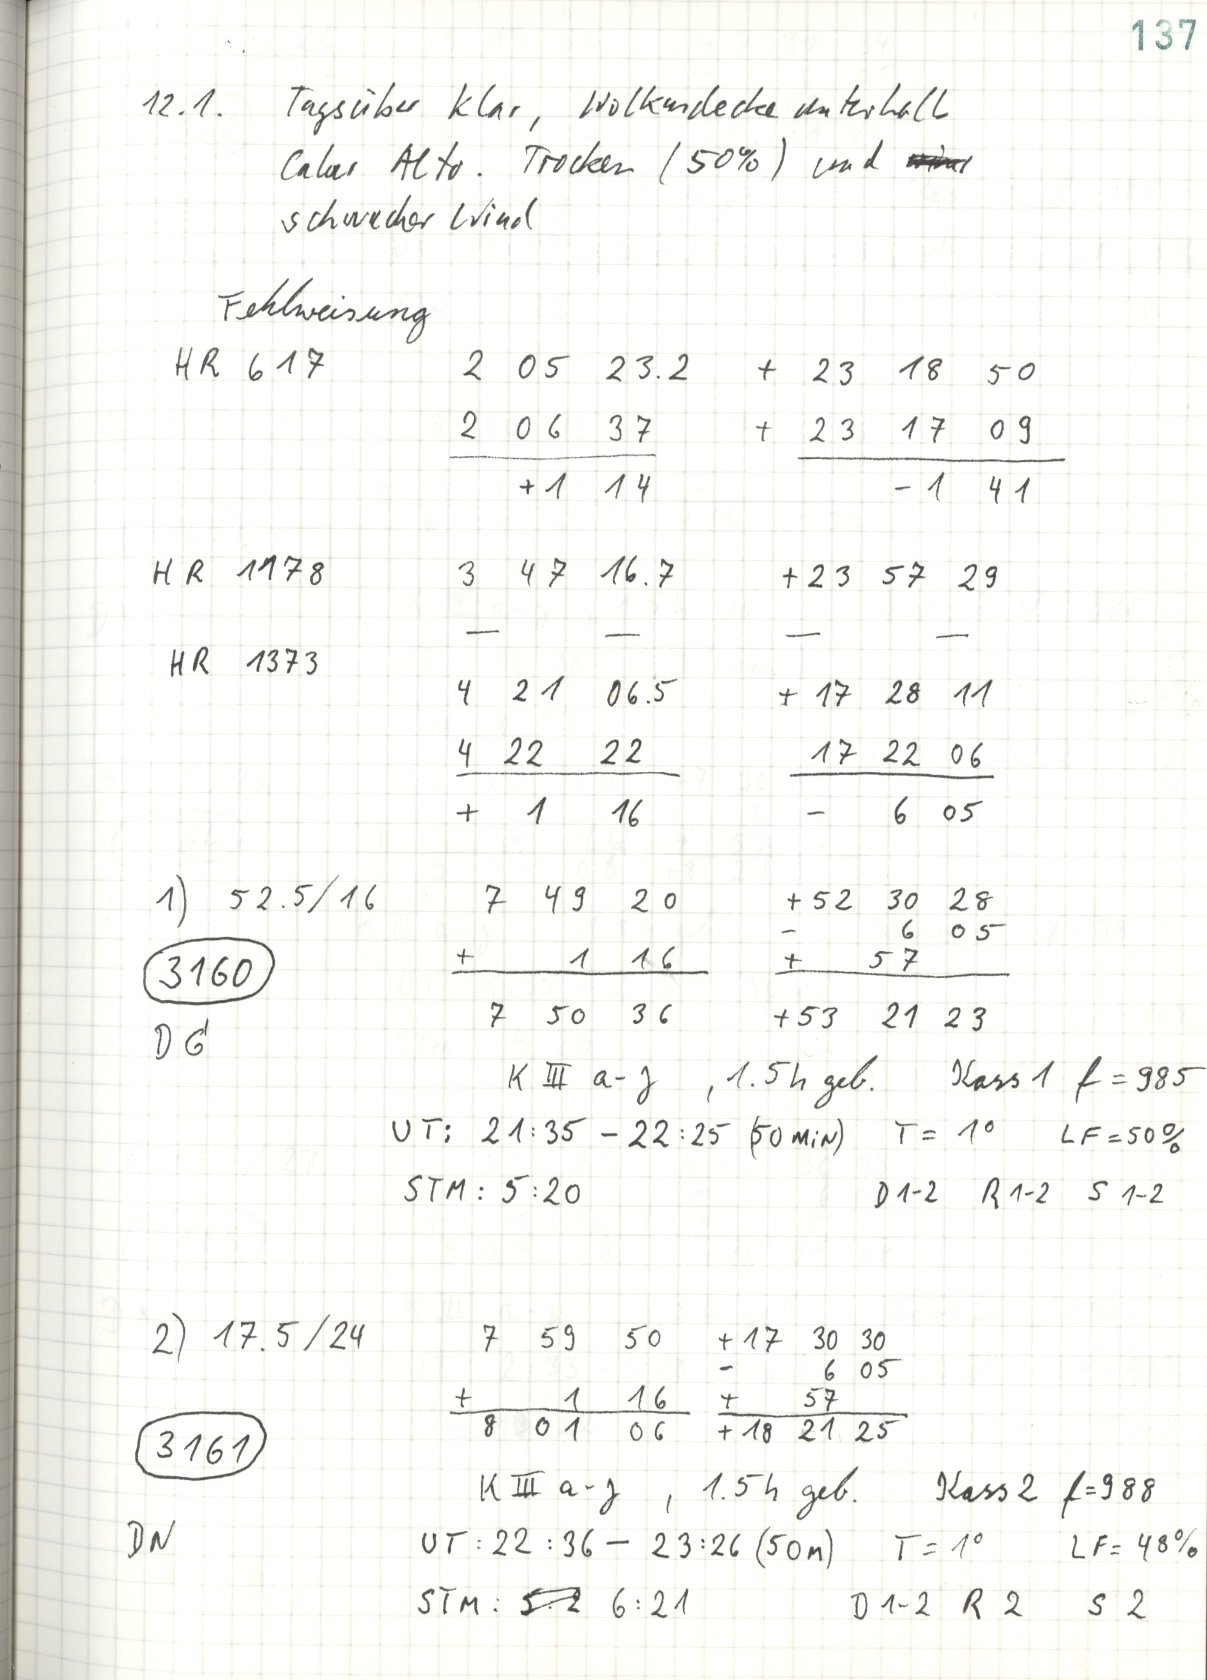 137
12.1. Tagsüber klar, Wolkendecke unterhalb
Calar Alto. Trocken (50%) und
schwacher Wind
Fehlweisung
HR 617 2 05 23.2 + 23 18 50
2 06 37 + 23 17 09
+1 14 - 1 41
HR 1178 3 47 16.7 +23 57 29
— — — —
HR 1373
4 21 06.5 + 17 28 11
4 22 22 17 22 06
+ 1 16 - 6 05
1) 52.5/16 7 49 20 +52 30 28
- 6 05
3160 + 1 16 + 57
7 50 36 +53 21 23
DG
K III a-J, 1.5h geb. Kass 1 f = 985
UT: 21:35 - 22:25 (50 MIN) T = 1° LF = 50%
STM: 5:20 D 1-2 R 1-2 S 1-2
2) 17.5/24 7 59 50 +17 30 30
- 6 05
+ 1 16 + 57
8 01 06 +18 21 25
3161
K III a-J, 1.5h geb. Kass 2 f = 988
DN UT: 22:36 - 23:26 (50m) T = 1° LF = 48%
STM: 6:21 D 1-2 R 2 S 2